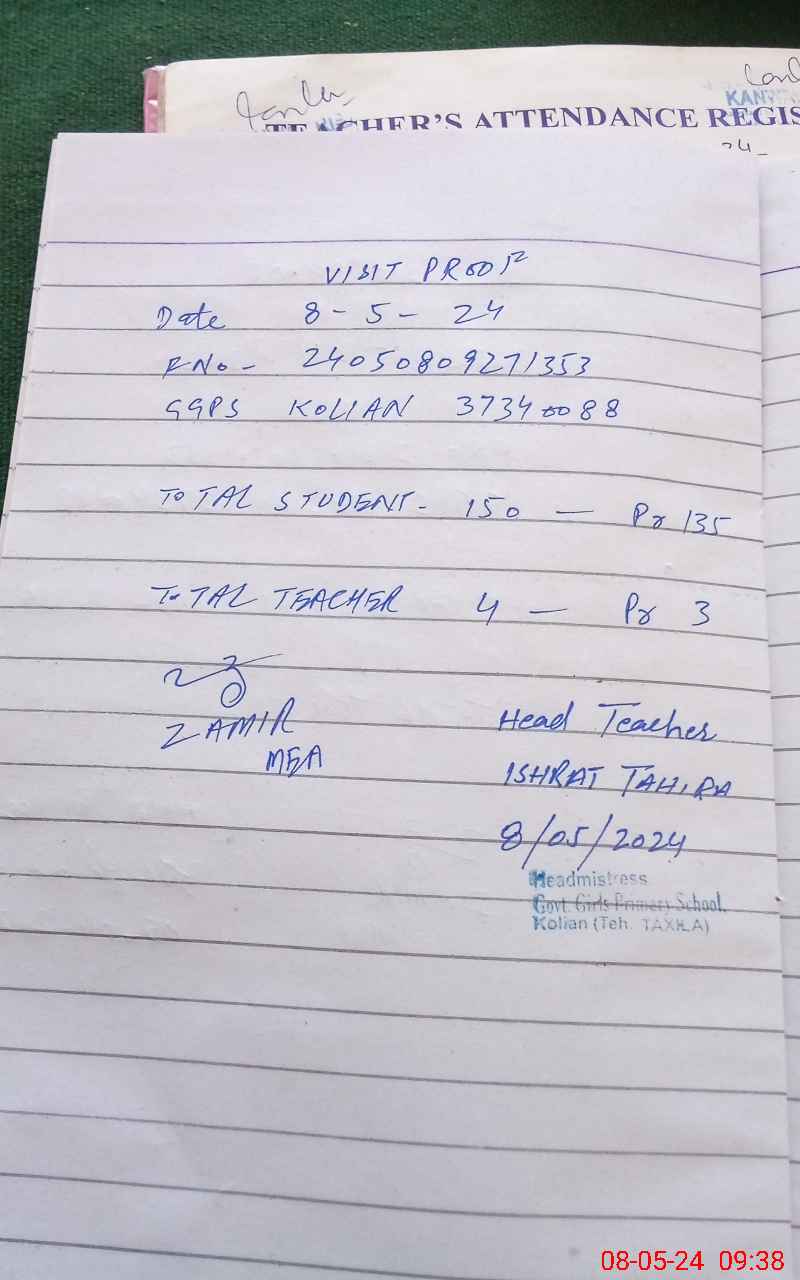 TEACHER'S ATTENDANCE REGIS
VISIT PROOF
Date 8-5-24
FNo- 24050809271353
GGPS KOLIAN 37340088
TOTAL STUDENT- 150 — Pr 135
TOTAL TEACHER 4 — Pr 3
ZAMIR
MEA
Head Teacher
ISHRAT TAHIRA
8/05/2024
Headmistress
Govt. Girls Primary School.
Kolian (Teh. TAXILA)
08-05-24 09:38